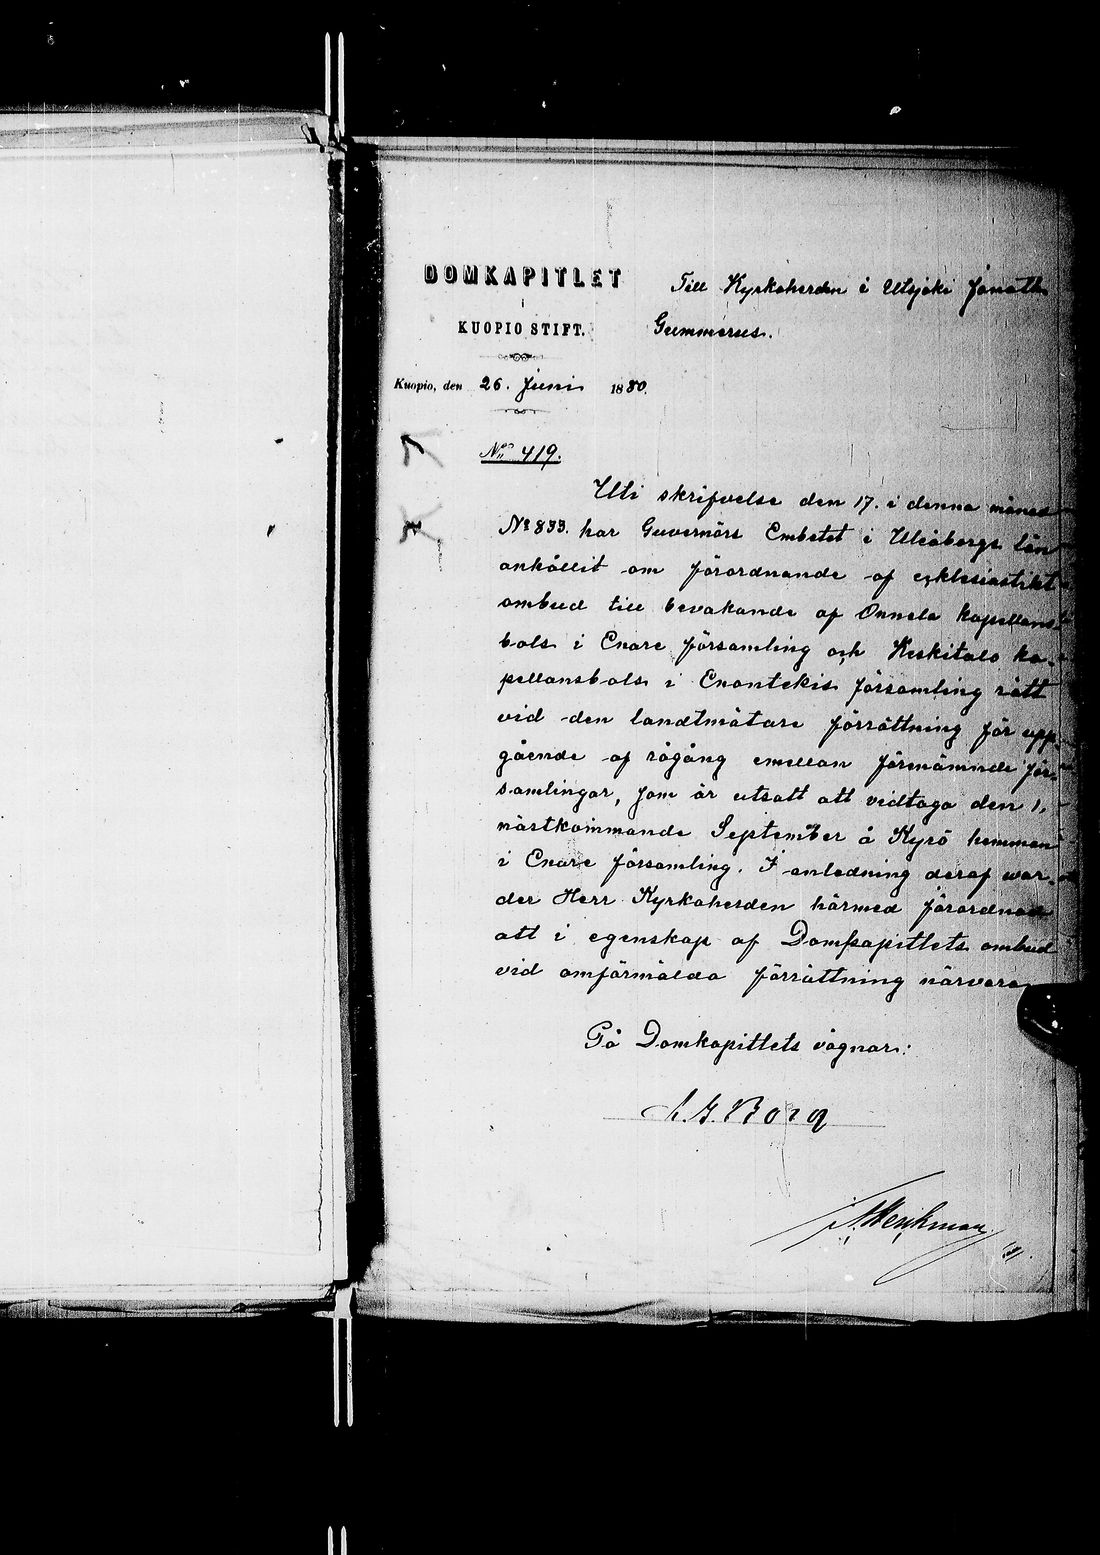 DOMKAPITLET
I
KUOPIO STIFT.
Kuopio, den 26. Juni 1880.
No 419.
Till Kyrkoherden i Utsjoki Jonath.
Gummerus.
Uti skrifvelse den 17. i denna månad
No 833. har Guvernörs Embetet i Uleåborgs län
anhållit om förordnande af ecklesiastikt
ombud till bevakande af Onnela kapellans-
bols i Enare församling och Keskitalo ka-
pellansbols i Enontekis församling rätt
vid den landtmätare förrättning för upp-
gående af rågång emellan förenämnde för-
samlingar, som är utsatt att vidtaga den 1.
nästkommande September å Kyrö hemman
i Enare församling. I anledning deraf war-
der Herr Kyrkoherden härmed förordnad
att i egenskap af Domkapitlets ombud
vid omförmälda förrättning närvara.
På Domkapitlets vägnar:
A. G. Borg